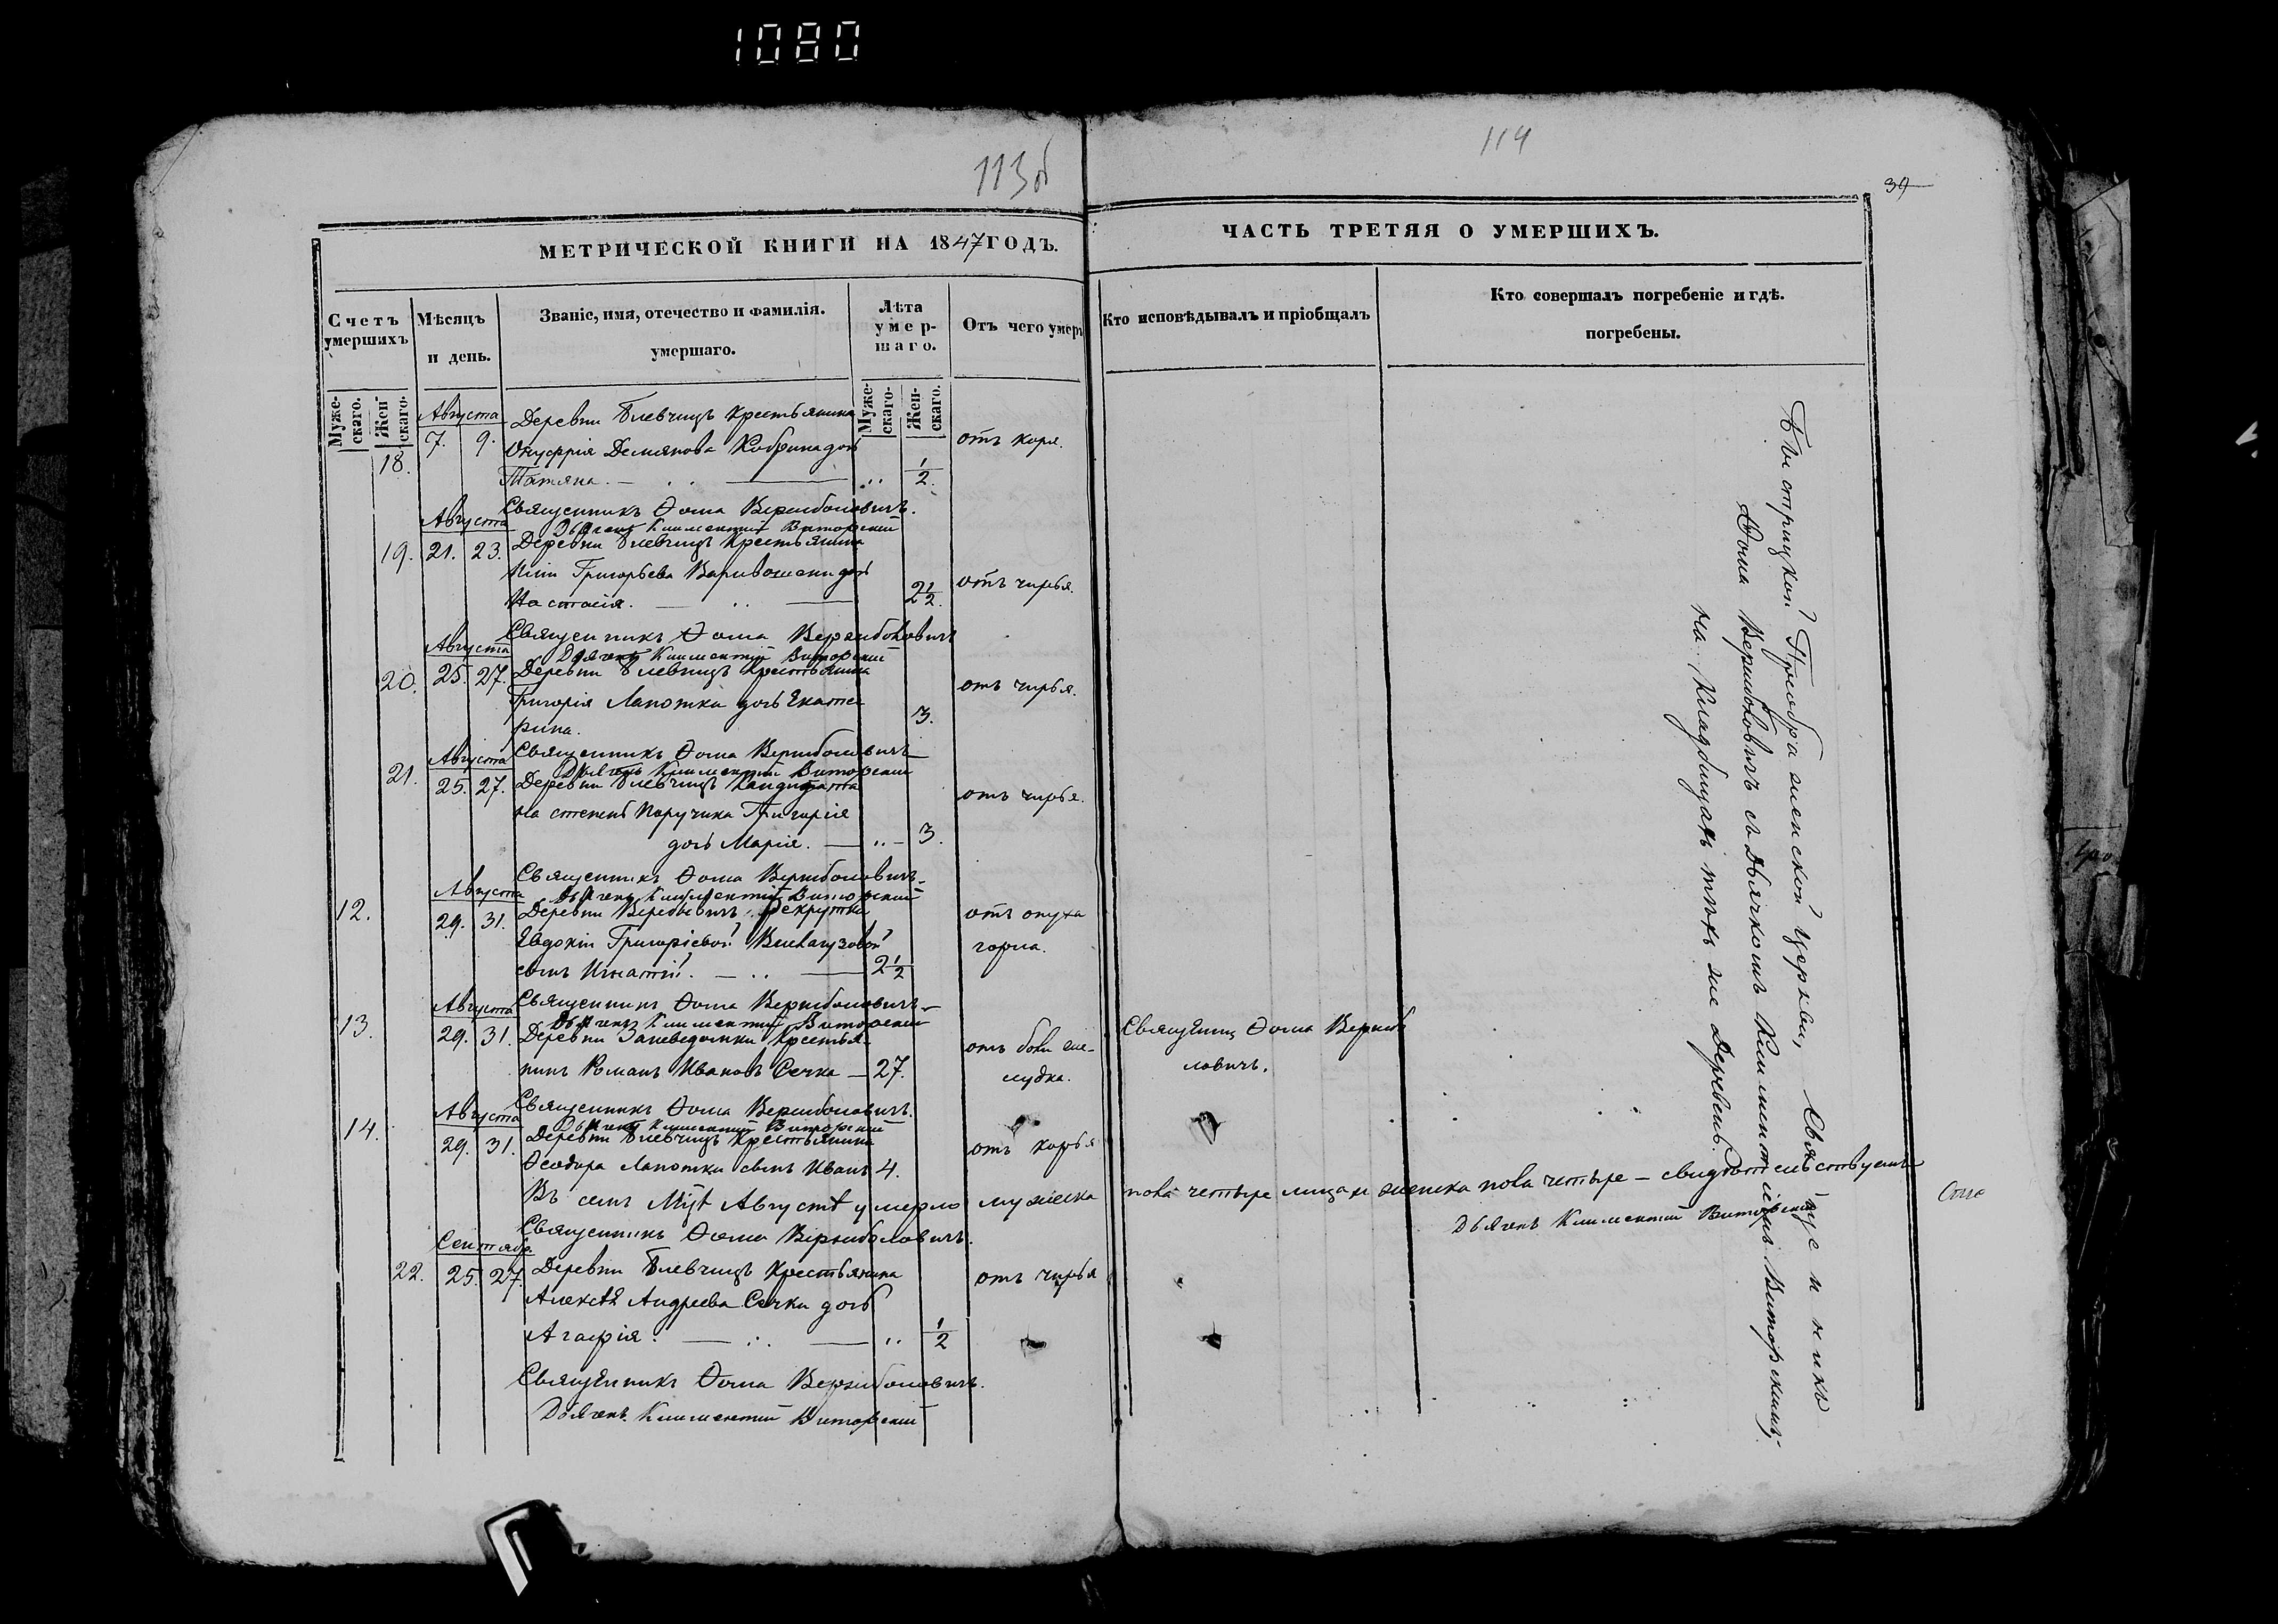 1080
113об
114
39
МЕТРИЧЕСКОЙ КНИГИ НА 1847 ГОДЪ.
ЧАСТЬ ТРЕТЯЯ О УМЕРШИХЪ.
Счетъ умершихъ
Мѣсяцъ и день.
Званіе, имя, отечество и фамилія. умершаго.
Лѣта умершаго.
Отъ чего умеръ
Кто исповѣдывалъ и пріобщалъ
Кто совершалъ погребеніе и гдѣ. погребены.
Мужескаго.
Женскаго.
Мужескаго.
Женскаго.
Августа Деревни Блевчицъ Крестьянина
18. 7. 9. Онуфрія Демянова Кобрина дочь отъ коря.
Татяна. — 1/2.
Священникъ Ѳома Вержболовичъ.
Августа Дьячекъ Климентій Виторскій
19. 21. 23. Деревни Блевчицъ Крестьянина
Григорьева дочь отъ чирья.
Настасія. — 2 1/2.
Священникъ Ѳома Вержболовичъ
Августа Дьячекъ Климентій Виторскій
20. 25. 27. Деревни Блевчицъ Крестьянина отъ чирья.
Григорія Лапотка дочь Екате
рина. 3.
Августа Священникъ Ѳома Вержболовичъ
Дьячекъ Климентій Виторскій
21. 25. 27. Деревни Блевчицъ Кандидата отъ чирья.
на степень Поручика Григорія
дочь Марія. — 3.
Священникъ Ѳома Вержболовичъ
Августа Дьячекъ Климентій Виторскій
12. 29. 31. Деревни рекрутки отъ опуха
Евдокіи Григоріевой горла.
сынъ Игнатій. — 2 1/2
Августа Священникъ Ѳома Вержболовичъ
Дьячекъ Климентій Виторскій
13. 29. 31. Деревни Заневедомки Крестья- отъ боли же- Священникъ Ѳома Вержбо
нинъ Романъ Ивановъ Сечка — 27. лудка. ловичъ.
Августа Священникъ Ѳома Вержболовичъ.
Дьячекъ Климентій Виторскій
14. 29. 31. Деревни Блевчицъ Крестьянина отъ корья
Ѳеодора Лапотки сынъ Иванъ 4.
Въ семъ Мцѣ Августѣ умерло мужеска пола четыре лица и женска пола четыре — свидѣтельствуемъ
Священникъ Ѳома Вержболовичъ. Дьячекъ Климентій Виторскій
Сентябр.
22. 25. 27. Деревни Блевчицъ Крестьянина отъ чирья
Алексѣя Андреева Сечки дочь
Агафія. — 1/2
Священникъ Ѳома Вержболовичъ.
Дьячекъ Климентій Виторскій
Преображенской церкви, Священникъ
Ѳома Вержболовичъ съ Дьячкомъ Климентіемъ Виторскимъ,
на Кладбищахъ тѣхъ же Деревень.